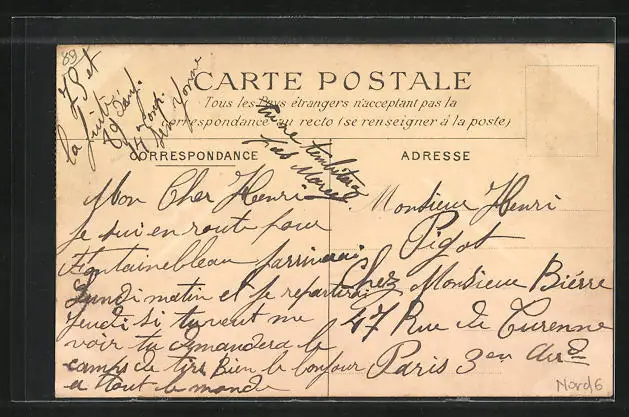 89
CARTE POSTALE
Tous les Pays étrangers n'acceptent pas la
correspondance au recto (se renseigner à la poste)
CORRESPONDANCE
ADRESSE
Mon Cher Henri
Je sui en route pour
Fontainebleau j'arriverais
Lundi matin et je repartirai
jeudi si tu veut me
voir tu demandera le
camps de tirs Bien le bonjour
a tout le monde
Monsieur Henri
Pigot
Chez Monsieur Bièrre
47 Rue de Turenne
Paris 3em Arr
Nord6